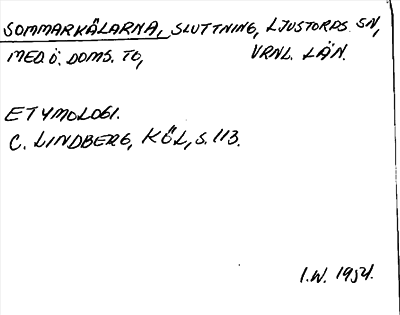 SOMMARKÄLARNA, SLUTTNING, LJUSTORPS SN,
MED. Ö. DOMS. TG, VRNL. LÄN.
ETYMOLOGI.
C. LINDBERG, KÖL, S. 113.
I.W. 1954.